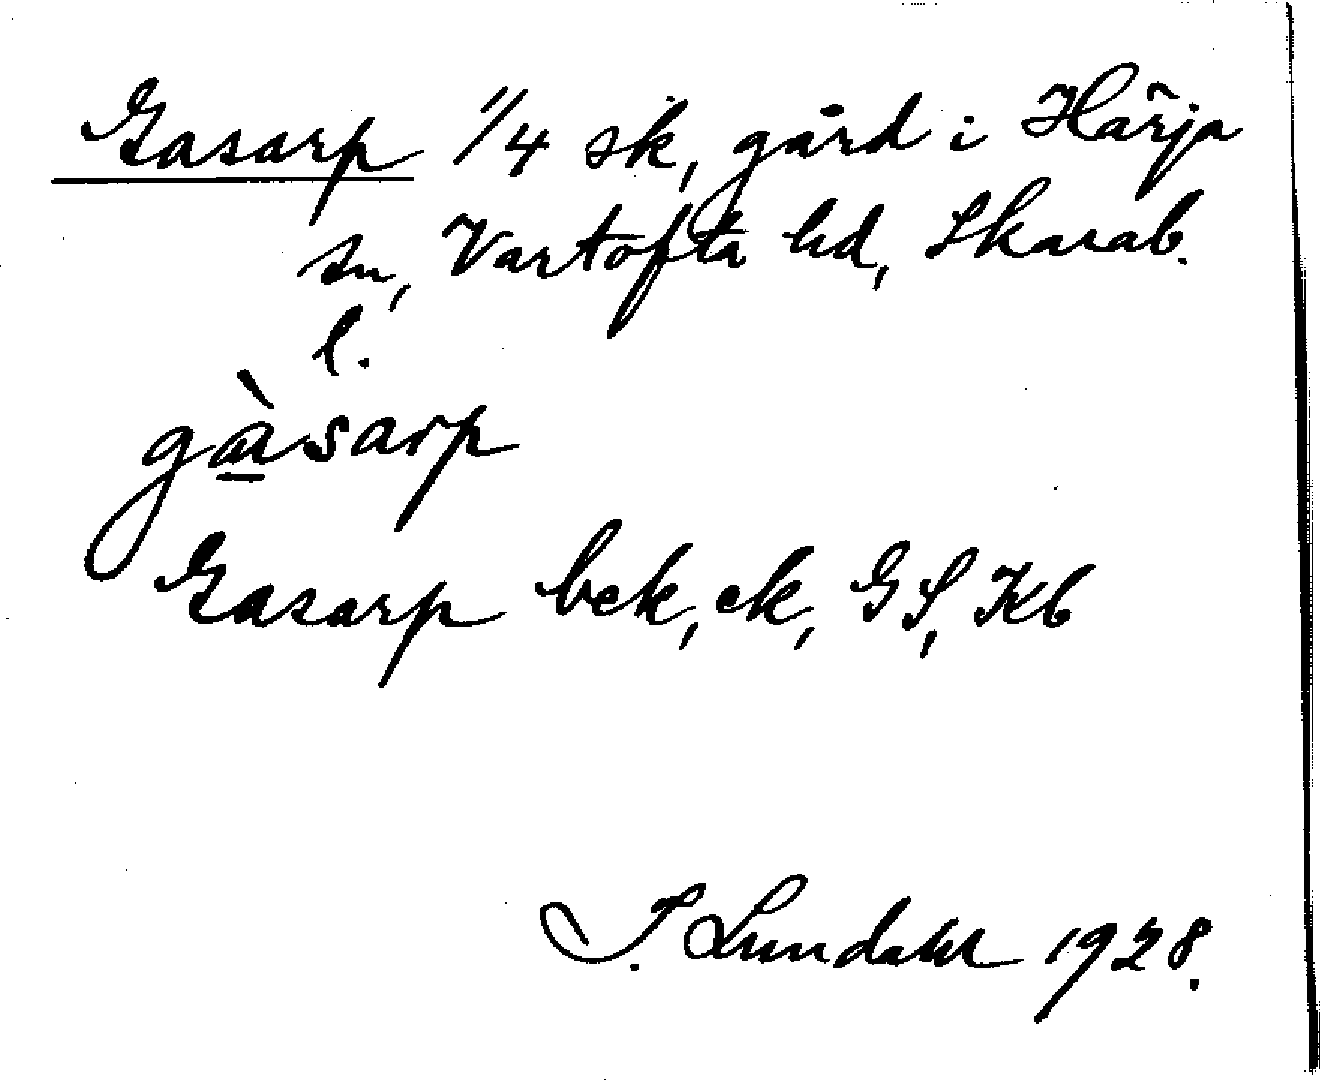 Gasarp 1/4 sk, gård i Härja
sn, Vartofta hd, Skarab.
l.
gàsarp
Gasarp bek, ek, GS, Kb
I. Lundahl 1928.